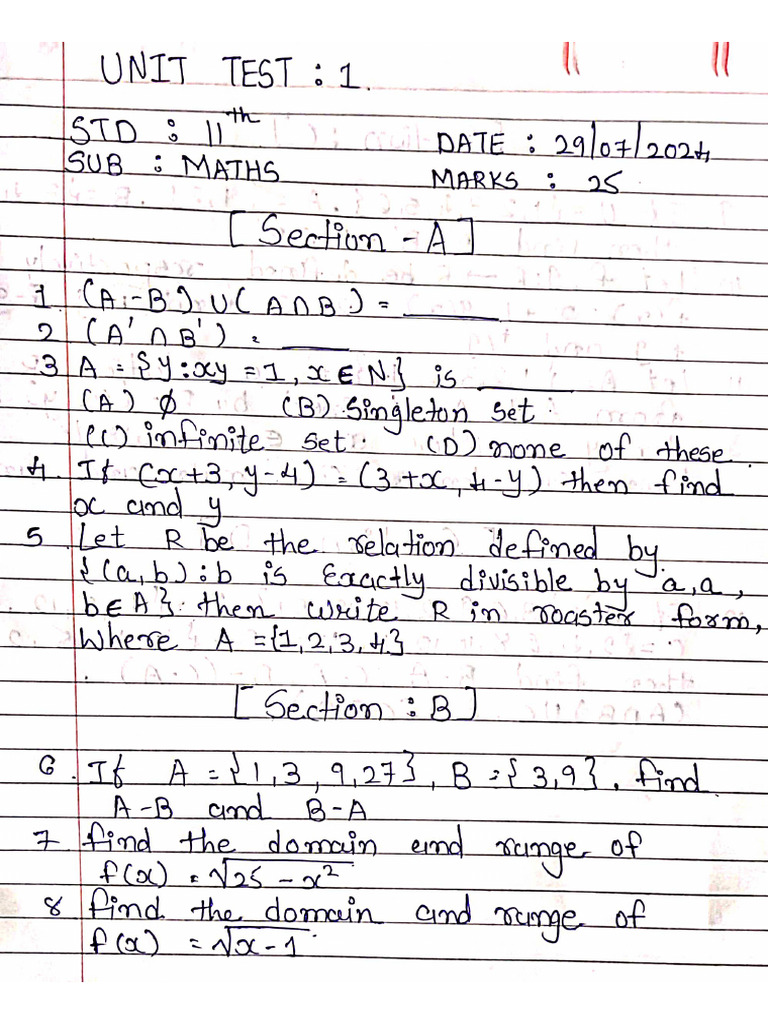 UNIT TEST : 1.
STD : 11th DATE : 29/07/2024
SUB : MATHS MARKS : 25
[Section - A]
1 (A - B) ∪ ( A ∩ B ) = ______
2 (A' ∩ B') = ______
3 A = {y : xy = 1, x ∈ N} is ______
(A) ∅ (B) Singleton set.
(C) infinite set. (D) none of these.
4. If (x+3, y-4) = (3+x, 4-y) then find
x and y
5 Let R be the relation defined by
{(a,b) : b is Exactly divisible by a, a,
b ∈ A} then write R in roaster form,
Where A = {1,2,3,4}
[Section : B]
6. If A = {1,3,9,27}, B = {3,9}. find
A-B and B-A
7 find the domain and range of
f(x) = √25 - x²
8 find the domain and range of
f(x) = √x - 1